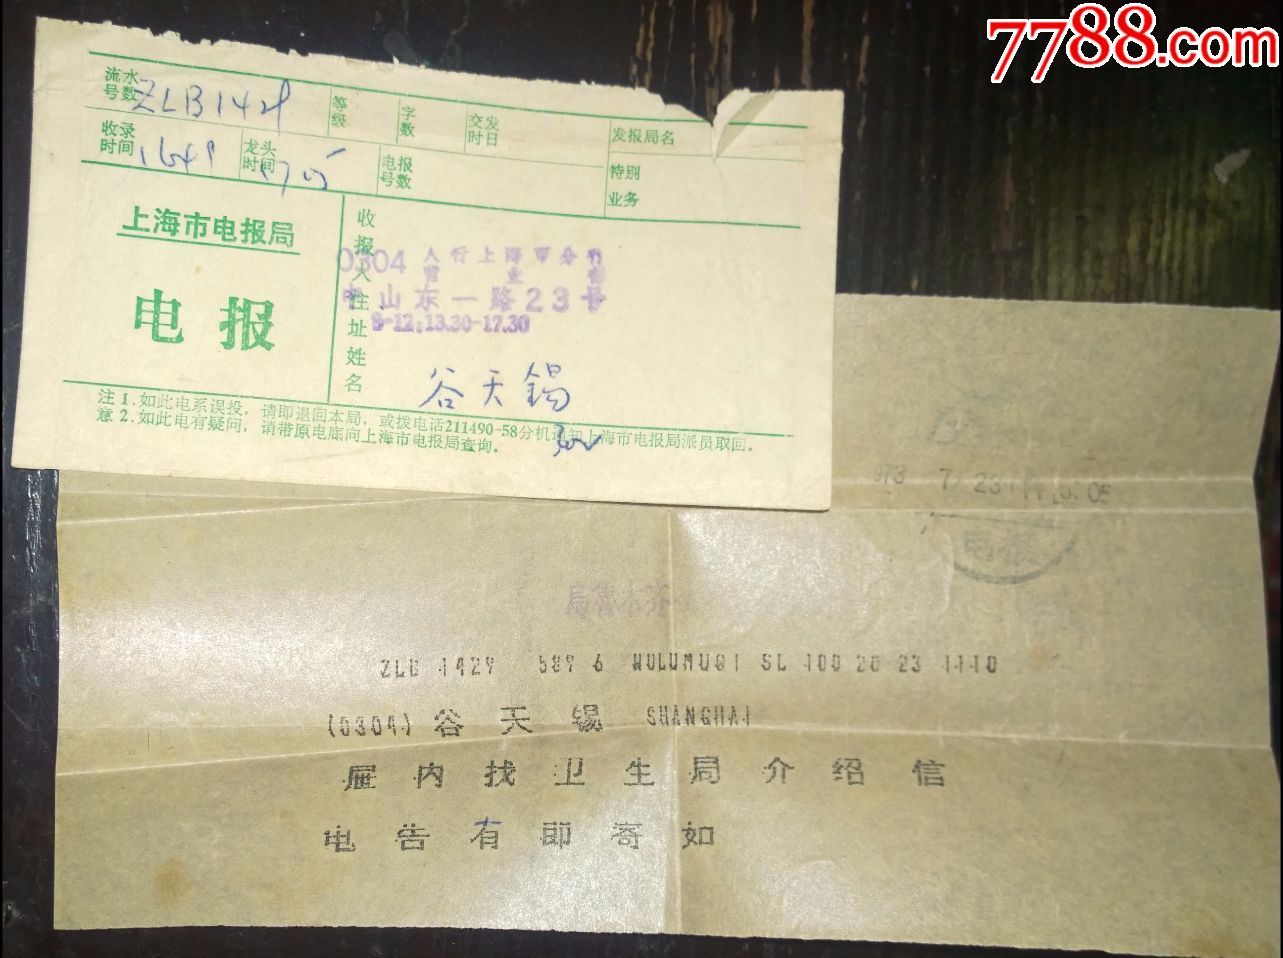 7788.com
流水号数 ZLB1429 等级 字数 交发日时 发报局名
收录时间 1649 龙头时间 1705 电报号数 特别业务
上海市电报局
电报
收报人住址姓名
0304 人行上海市分行
营业部
中山东一路23号
8-12,13.30-17.30
谷天锡
注意 1.如此电系误投，请即退回本局，或拨电话211490-58分机通知上海市电报局派员取回。
2.如此电有疑问，请带原电底向上海市电报局查询。
973 7/23
电报
ZLB 1429 589 6 WULUMUQI SL 100 20 23 1110
(0304) 谷天锡 SHANGHAI
屉内找卫生局介绍信
电告有即寄如